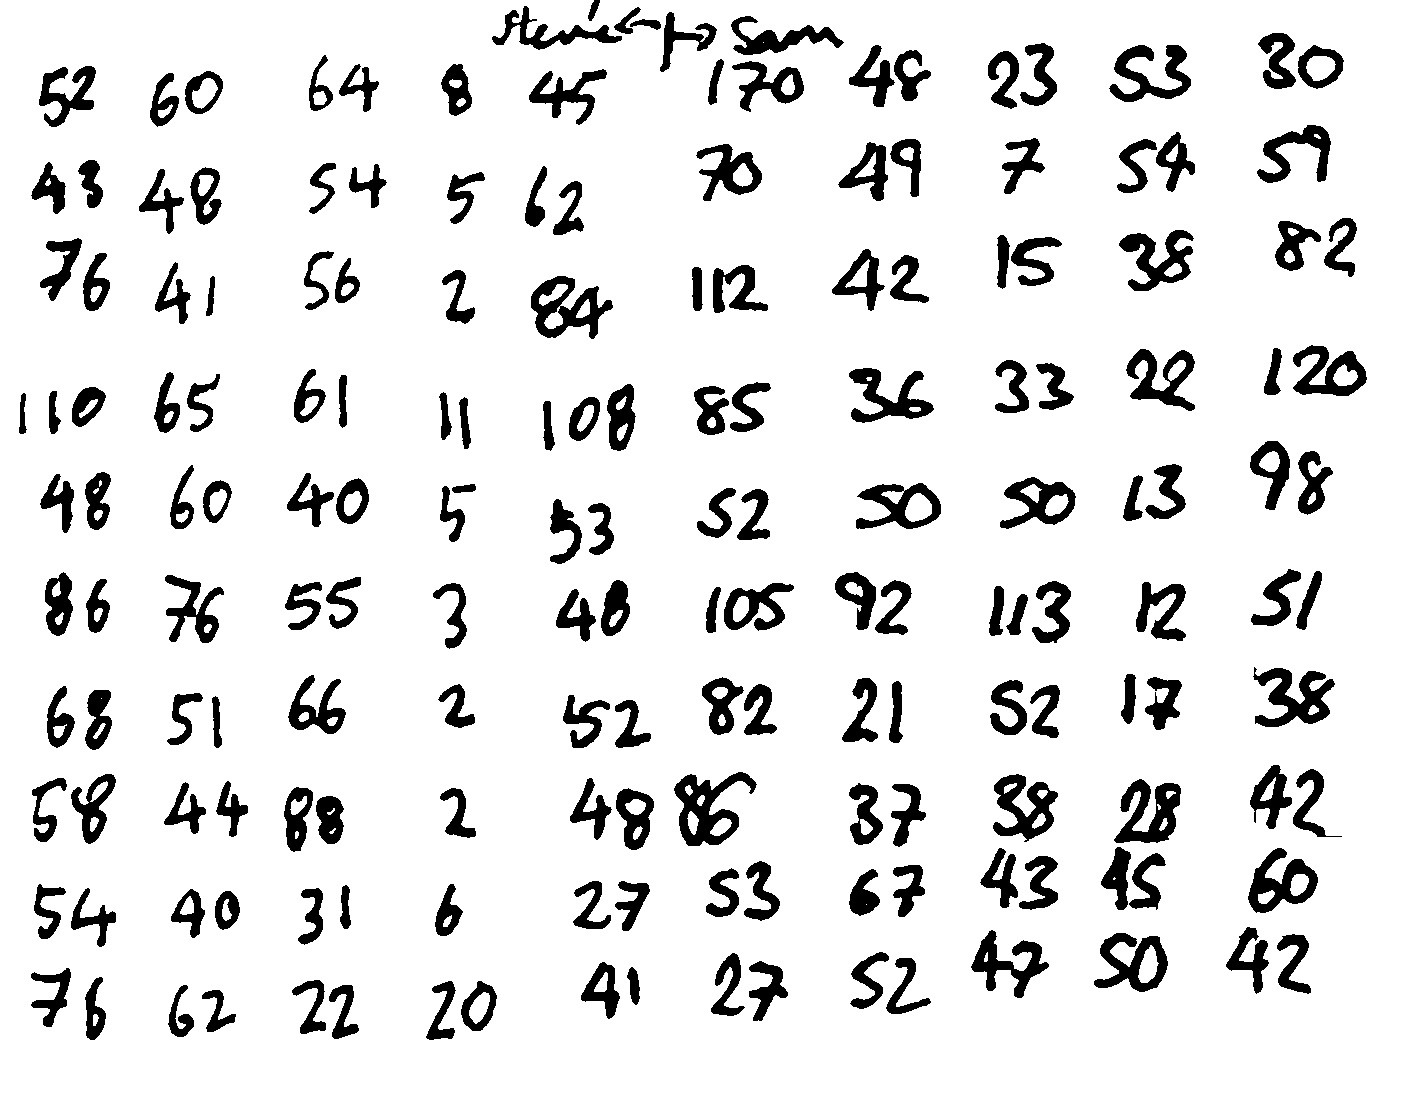 Stevie ← | → Sam
52 60 64 8 45 170 48 23 53 30
43 48 54 5 62 70 49 7 54 59
76 41 56 2 84 112 42 15 38 82
110 65 61 11 108 85 36 33 22 120
48 60 40 5 53 52 50 50 13 98
86 76 55 3 48 105 92 113 12 51
68 51 66 2 52 82 21 52 17 38
58 44 88 2 48 86 37 38 28 42
54 40 31 6 27 53 67 43 45 60
76 62 22 20 41 27 52 47 50 42